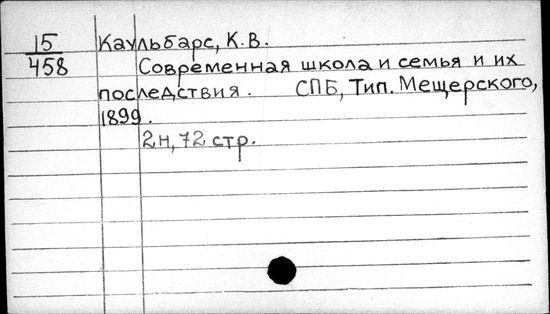 15 Каульбарс, К.В.
458 Современная школа и семья и их
последствия. СПБ, Тип. Мещерского,
1899.
2н, 72 стр.